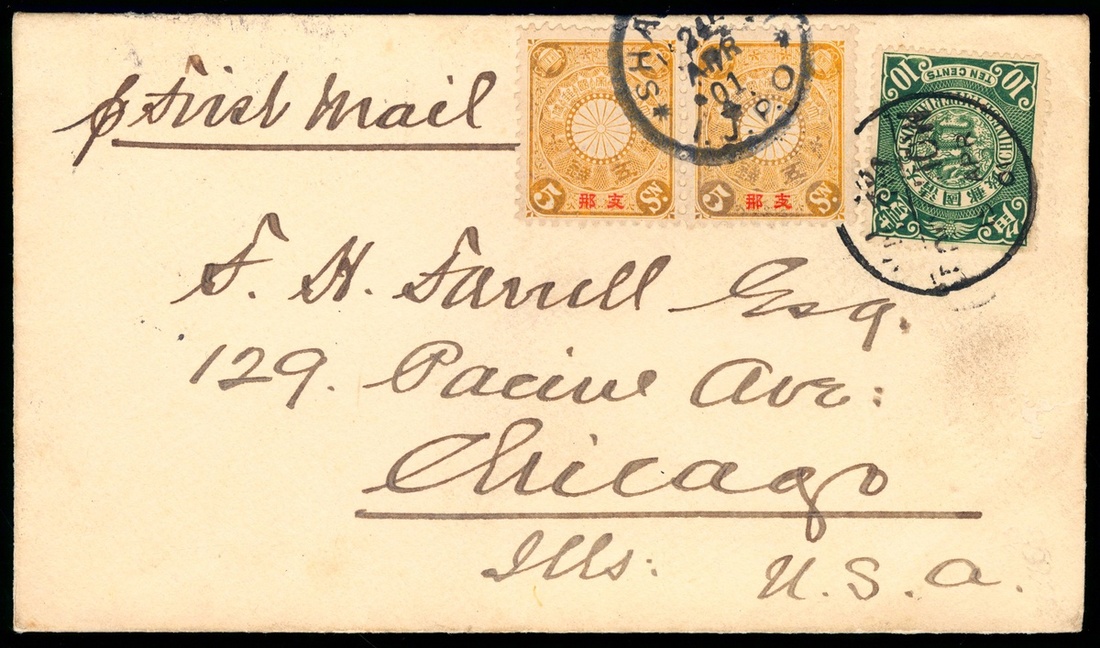 ℘ First Mail
5 Sn. 支那
5 Sn. 支那
* SHA
24
APR
01
I.J.P.O *
10 TEN CENTS 10
APR
F. H. Farrell Esq.
129. Pacine Ave:
Chicago
Ills: U.S.A.